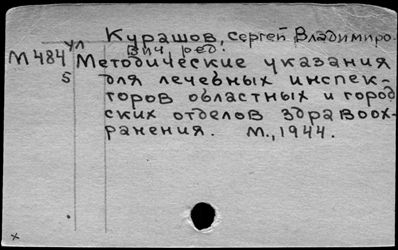 Курашов, Сергей Владимиро-
вич, ред.
М484 Методические указания
5 для лечебных инспек-
торов областных и город
ских отделов здравоох-
ранения. М., 1944.
x